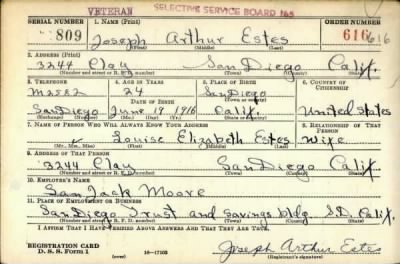 VETERAN SELECTIVE SERVICE BOARD 165
SERIAL NUMBER 1. NAME (Print) ORDER NUMBER
809 Joseph Arthur Estes 616 616
(First) (Middle) (Last)
2. ADDRESS (Print)
3244 Clay San Diego Calif.
(Number and street or R. F. D. number) (Town) (County) (State)
3. TELEPHONE 4. AGE IN YEARS 5. PLACE OF BIRTH 6. COUNTRY OF CITIZENSHIP
M2582 24 San Diego
DATE OF BIRTH (Town or county)
San Diego June 19 1916 Calif. United States
(Exchange) (Number) (Mo.) (Day) (Yr.) (State or country)
7. NAME OF PERSON WHO WILL ALWAYS KNOW YOUR ADDRESS 8. RELATIONSHIP OF THAT PERSON
Louise Elizabeth Estes Wife
(Mr., Mrs., Miss) (First) (Middle) (Last)
9. ADDRESS OF THAT PERSON
3244 Clay San Diego Calif.
(Number and street or R. F. D. number) (Town) (County) (State)
10. EMPLOYER'S NAME
San Jack Moore
11. PLACE OF EMPLOYMENT OR BUSINESS
San Diego Trust and Savings bldg. S.D. Calif.
(Number and street or R. F. D. number) (Town) (County) (State)
I AFFIRM THAT I HAVE VERIFIED ABOVE ANSWERS AND THAT THEY ARE TRUE.
REGISTRATION CARD
D. S. S. Form 1 16—17105 Joseph Arthur Estes
(Registrant's signature)